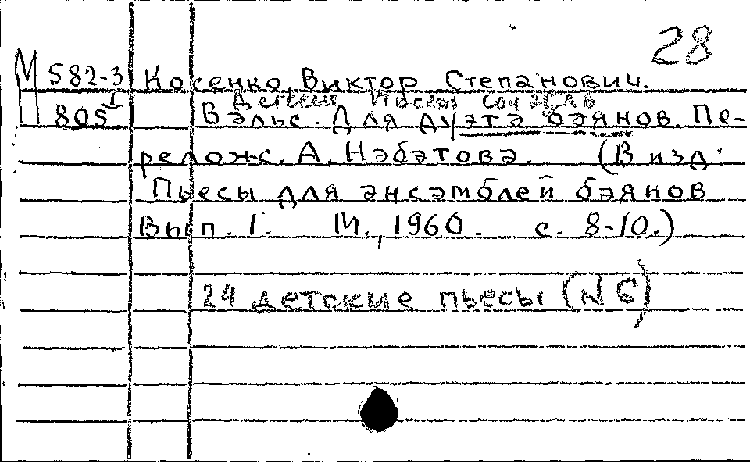 28
М 582-3 Косенко, Виктор Степанович.
Детские пьесы
805 I Вальс. Для дуэта баянов. Пе-
релож. А. Набатова. (В изд:
Пьесы для ансамблей баянов
Вып. I. М., 1960. с. 8-10.)
24 детские пьесы (N 6)